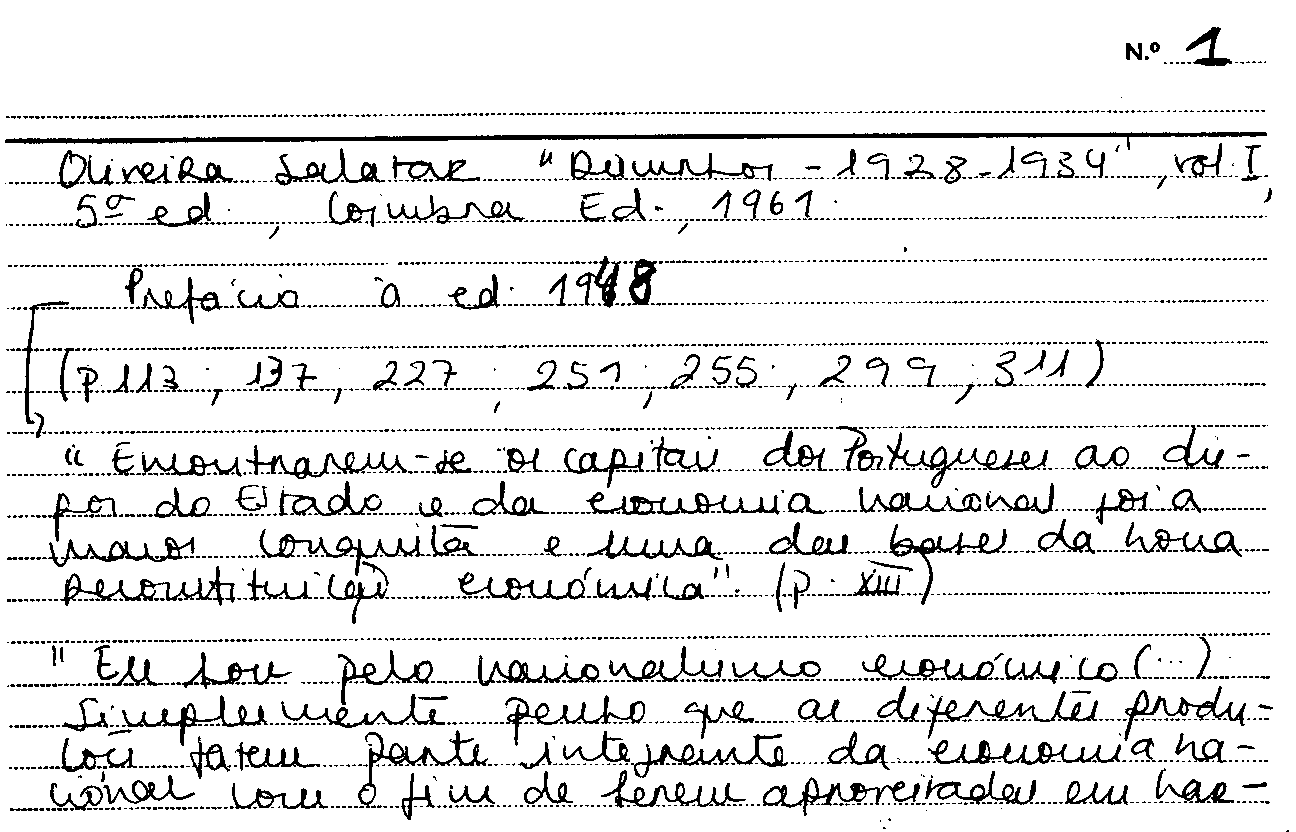 N.º 1
Oliveira Salazar "Discursos - 1928-1934", vol. I,
5ª ed., Coimbra Ed., 1961.
Prefácio à ed. 1948
(p 113, 137, 227, 251, 255, 299, 311)
"Encontrarem-se os capitais dos Portugueses ao dis-
por do Estado e da economia nacional foi a
maior conquista e uma das bases da nova
reconstituição económica". (p. XIII)
"Eu sou pelo nacionalismo económico (...)
Simplesmente penso que as diferentes produ-
ções fazem parte integrante da economia na-
cional com o fim de serem aproveitadas em har-